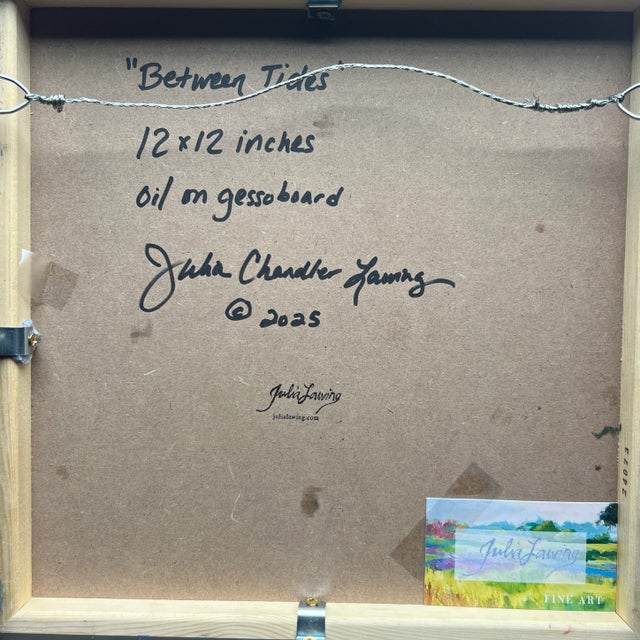 "Between Tides"
12 x 12 inches
oil on gessoboard
Julia Chandler Lawing
© 2025
Julia Lawing
julialawing.com
24073
Julia Lawing
FINE ART